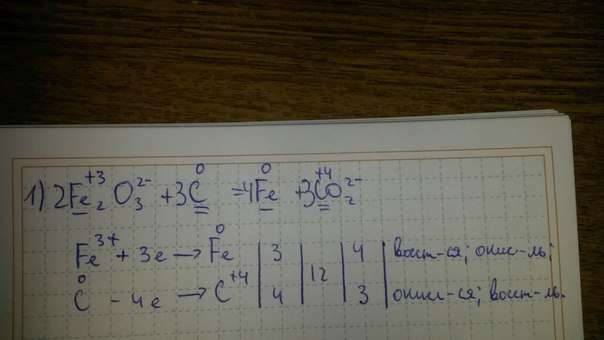 1) 2Fe₂⁺³O₃²⁻ + 3C⁰ = 4Fe⁰ + 3C⁺⁴O₂²⁻
Fe³⁺ + 3e → Fe⁰ | 3 | 12 | 4 | восст-ся; окис-ль;
C⁰ - 4e → C⁺⁴ | 4 | 3 | окисл-ся; восст-ль.